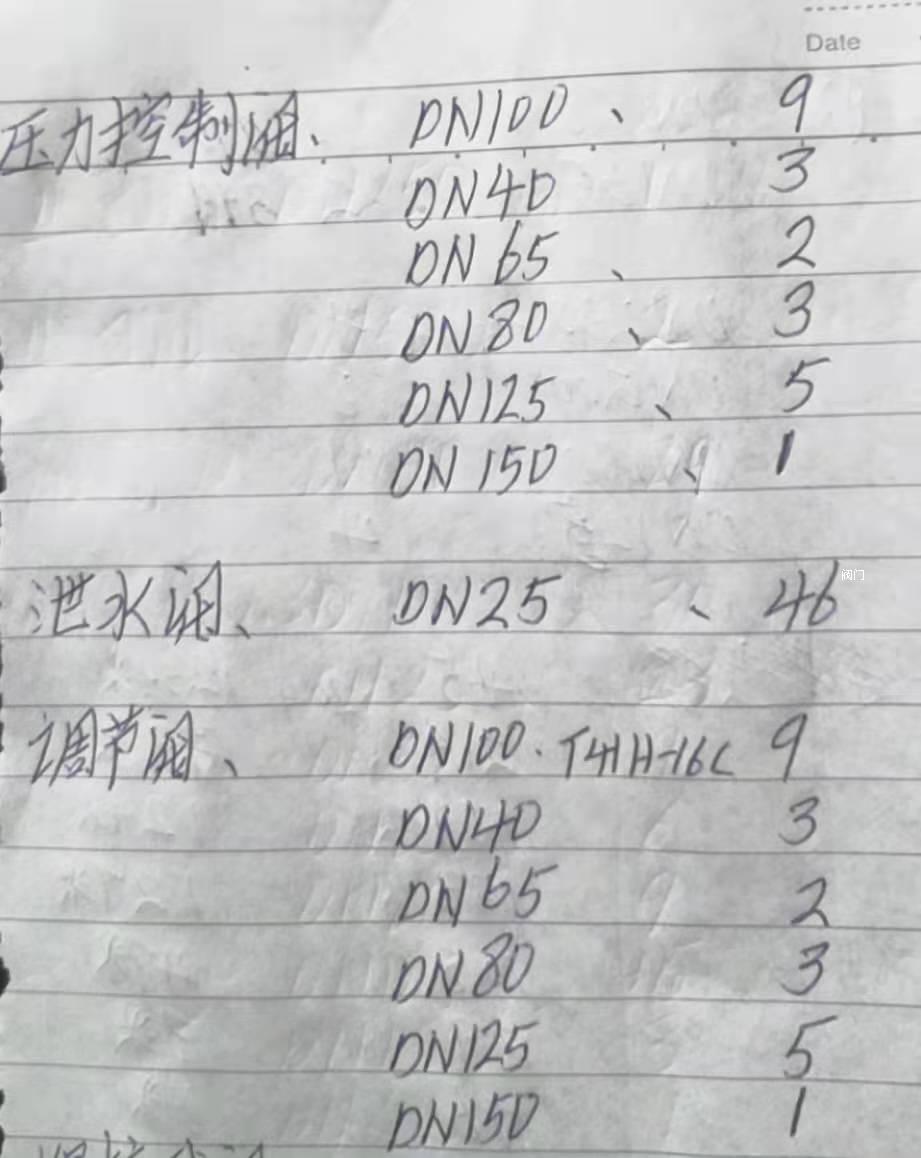 Date
压力控制阀、 DN100 、 9
DN40 3
DN65 、 2
DN80 、 3
DN125 、 5
DN150 、 1
泄水阀、 DN25 、 46
阀门
调节阀、 DN100.T41H-16C 9
DN40 3
DN65 2
DN80 3
DN125 5
DN150 1